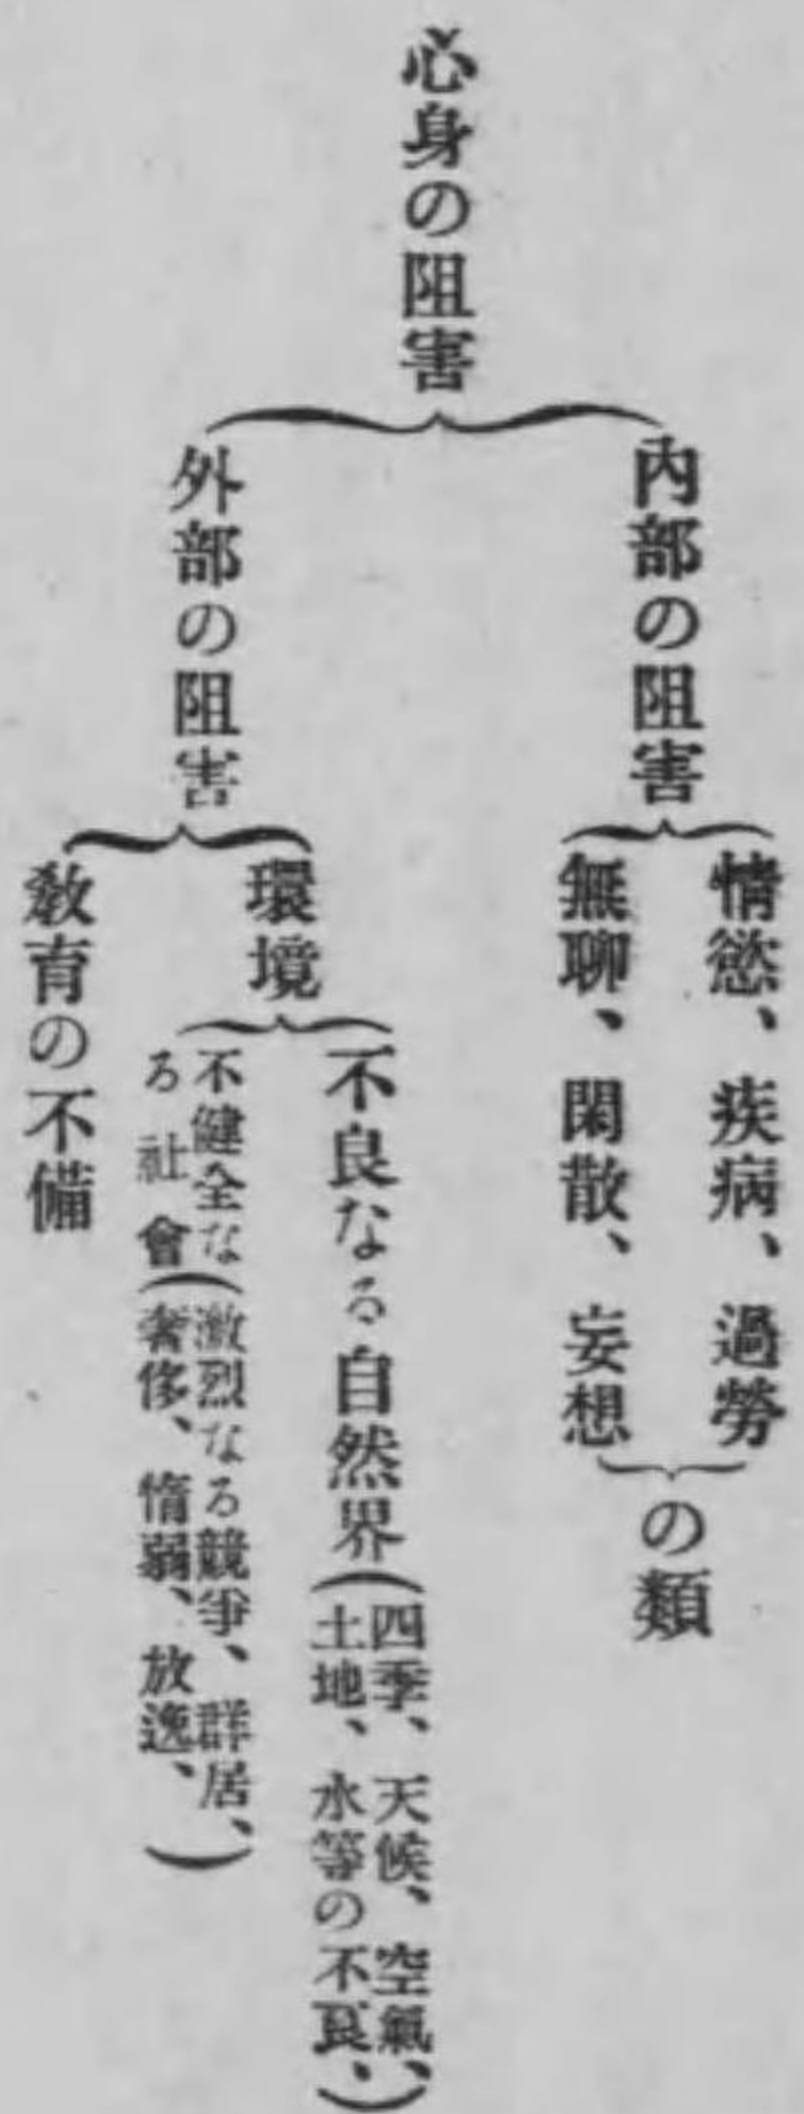 心身の阻害
內部の阻害
情慾、疾病、過勞
無聊、閑散、妄想
の類
外部の阻害
環境
不良なる自然界
(四季、天候、空氣、
土地、水等の不良、)
不健全な
る社會
(激烈なる競爭、群居、
奢侈、惰弱、放逸、)
敎育の不備